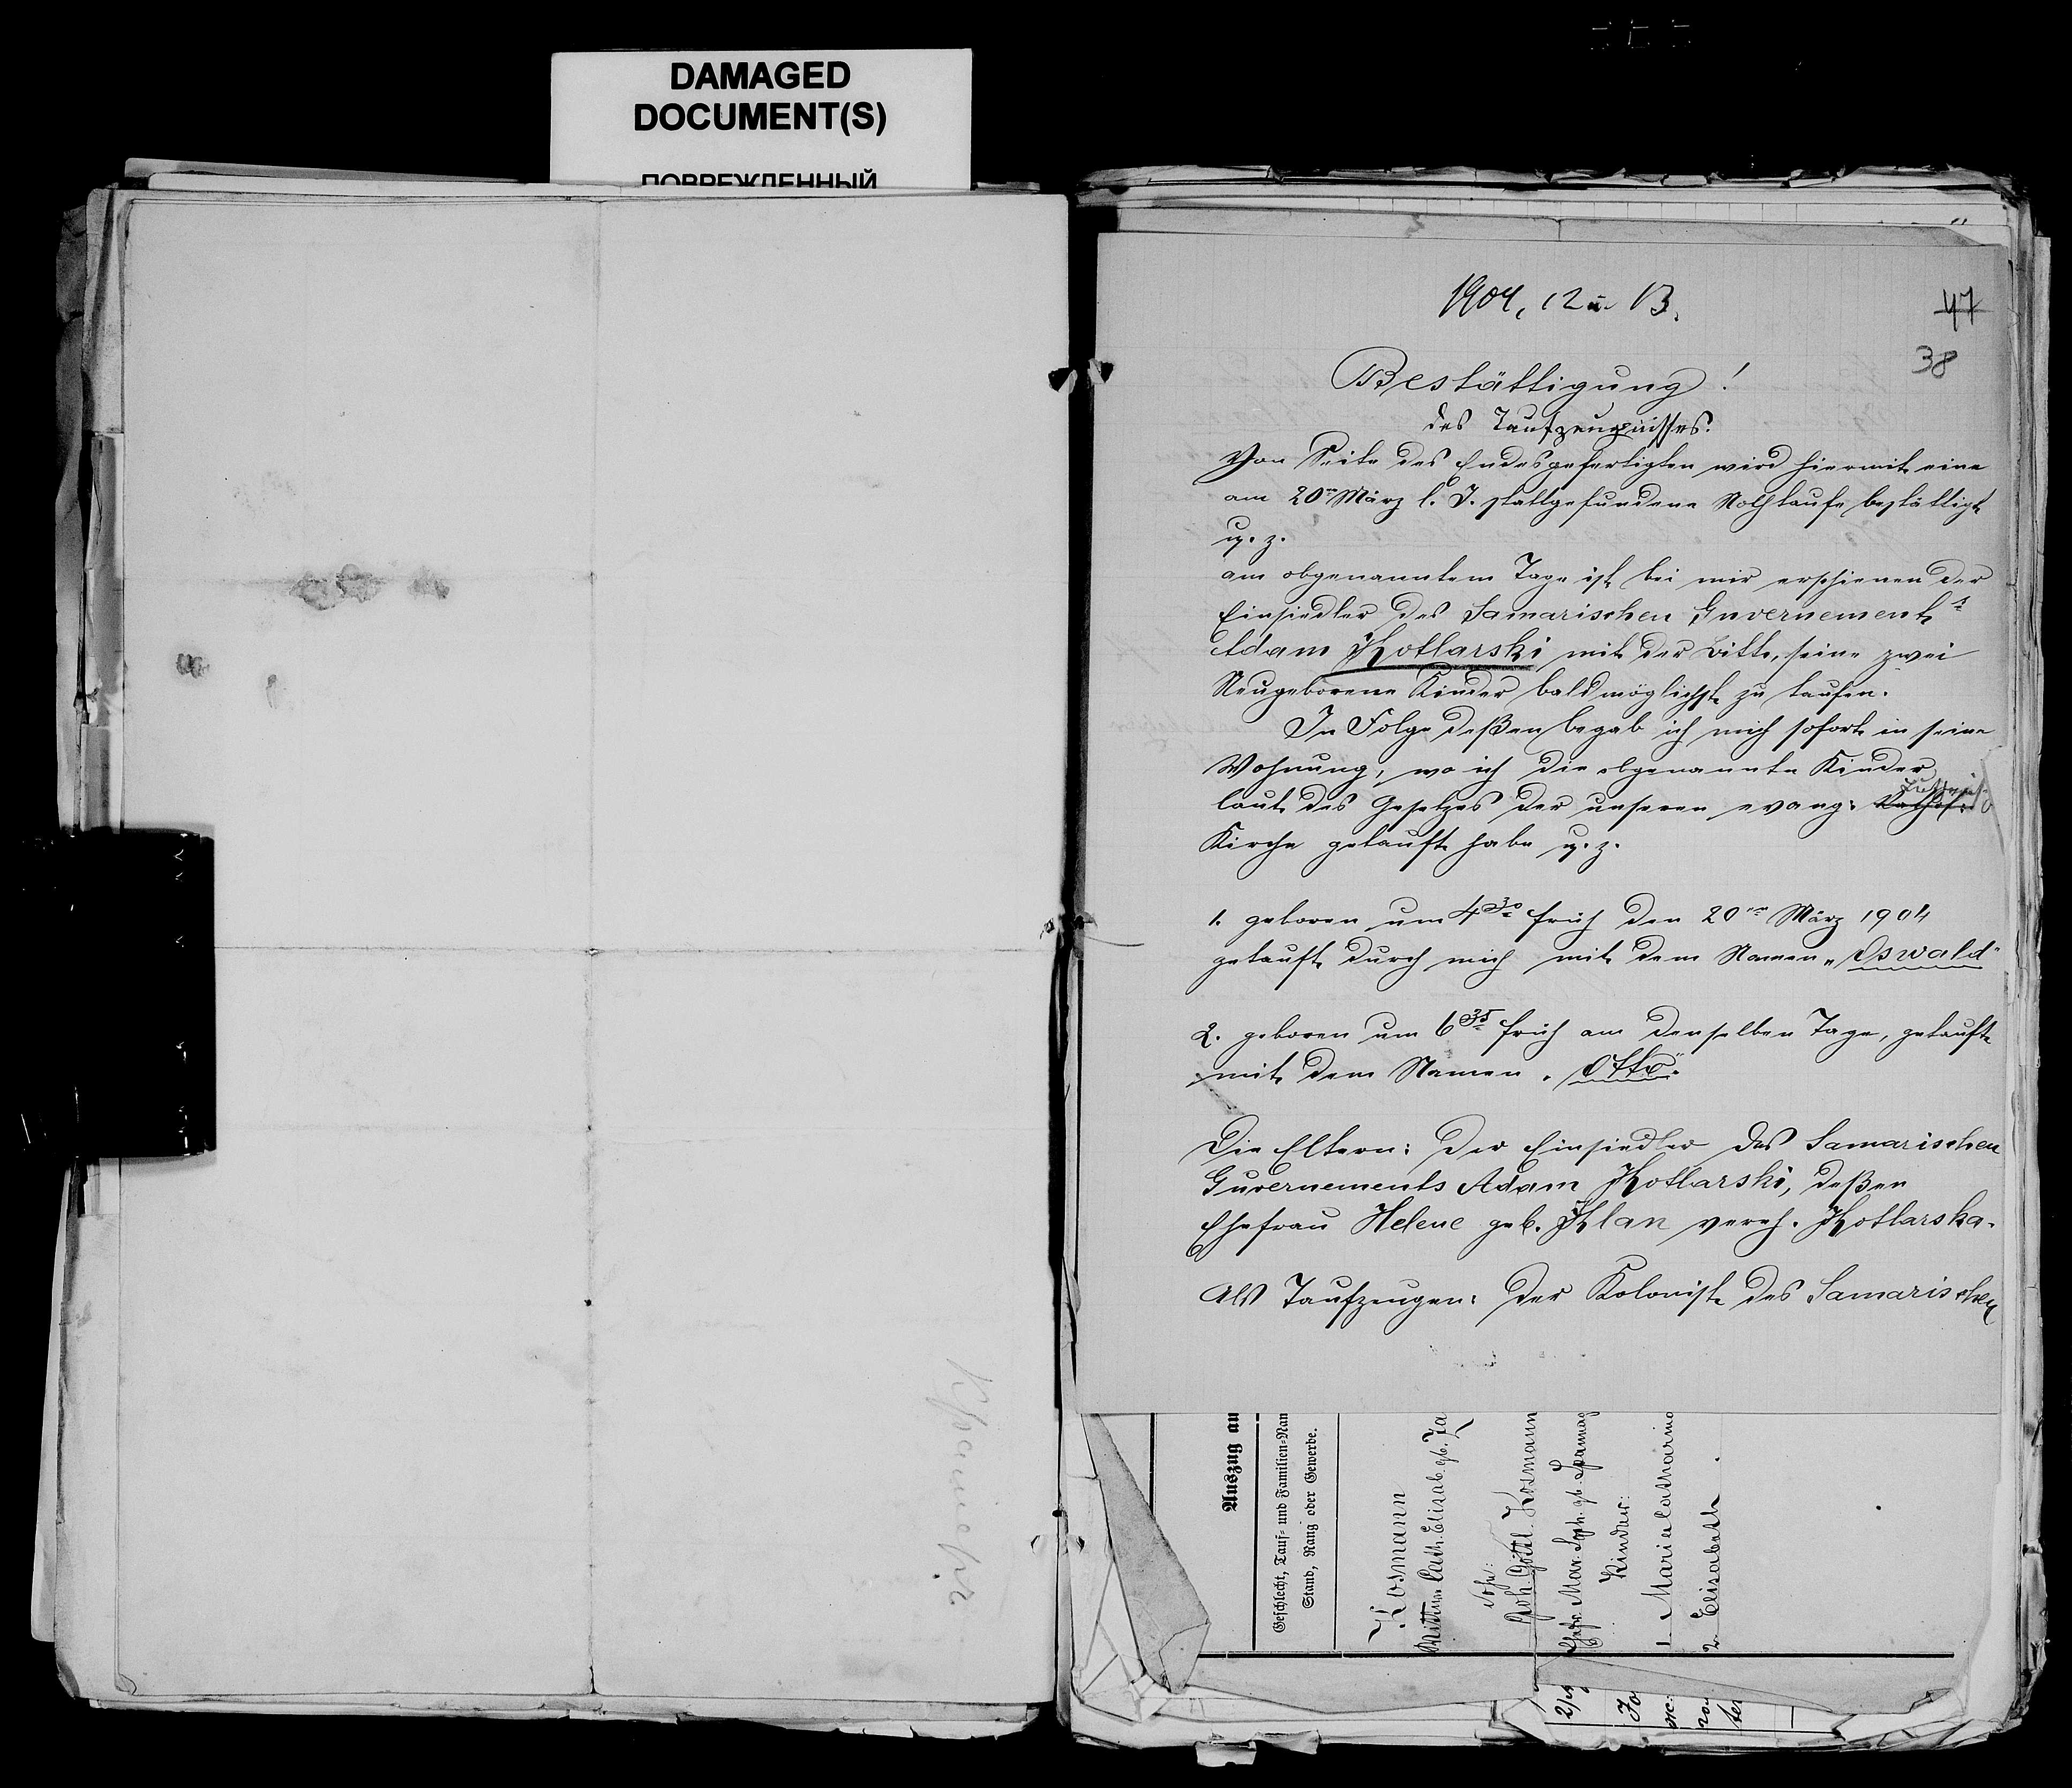 DAMAGED
DOCUMENT(S)
ПОВРЕЖДЕННЫЙ
1904, 12 u 13.
47
38
Bestättigung!
des Taufzeugnisses.
Von Seite des Endesgefertigten wird hiermit eine
am 20ten März l. J. stattgefundene Nothtaufe bestättigt
u. z.
am obgenanntem Tage ist bei mir erschienen der
Einsiedler des Samarischen Guvernements
Adam Kotlarski mit der Bitte, seine zwei
Neugeborene Kinder baldmöglichst zu taufen.
In Folge deßen begab ich mich sofort in seine
Wohnung, wo ich die obgenannte Kinder
laut des Gesetzes der unseren evang:
Kirche getauft habe u. z.
1. geboren um 4 30 früh den 20ten März 1904
getauft durch mich mit dem Namen „Oswald"
2. geboren um 6 35 früh am denselben Tage, getauft
mit dem Namen „Otto".
Die Eltern: Der Einsiedler des Samarischen
Guvernements Adam Kotlarski, deßen
Ehefrau Helene geb. Klan vereh. Kotlarska.
Als Taufzeugen: Der Kolonist des Samarischen
Auszug au
Geschlecht, Tauf- und Familien-Nam
Stand, Rang oder Gewerbe.
Kosmann
Cath. Elisab. gb.
Joh. Gottl. Kosmann
Kinder:
1. Marie Catharina
2. Elisabeth